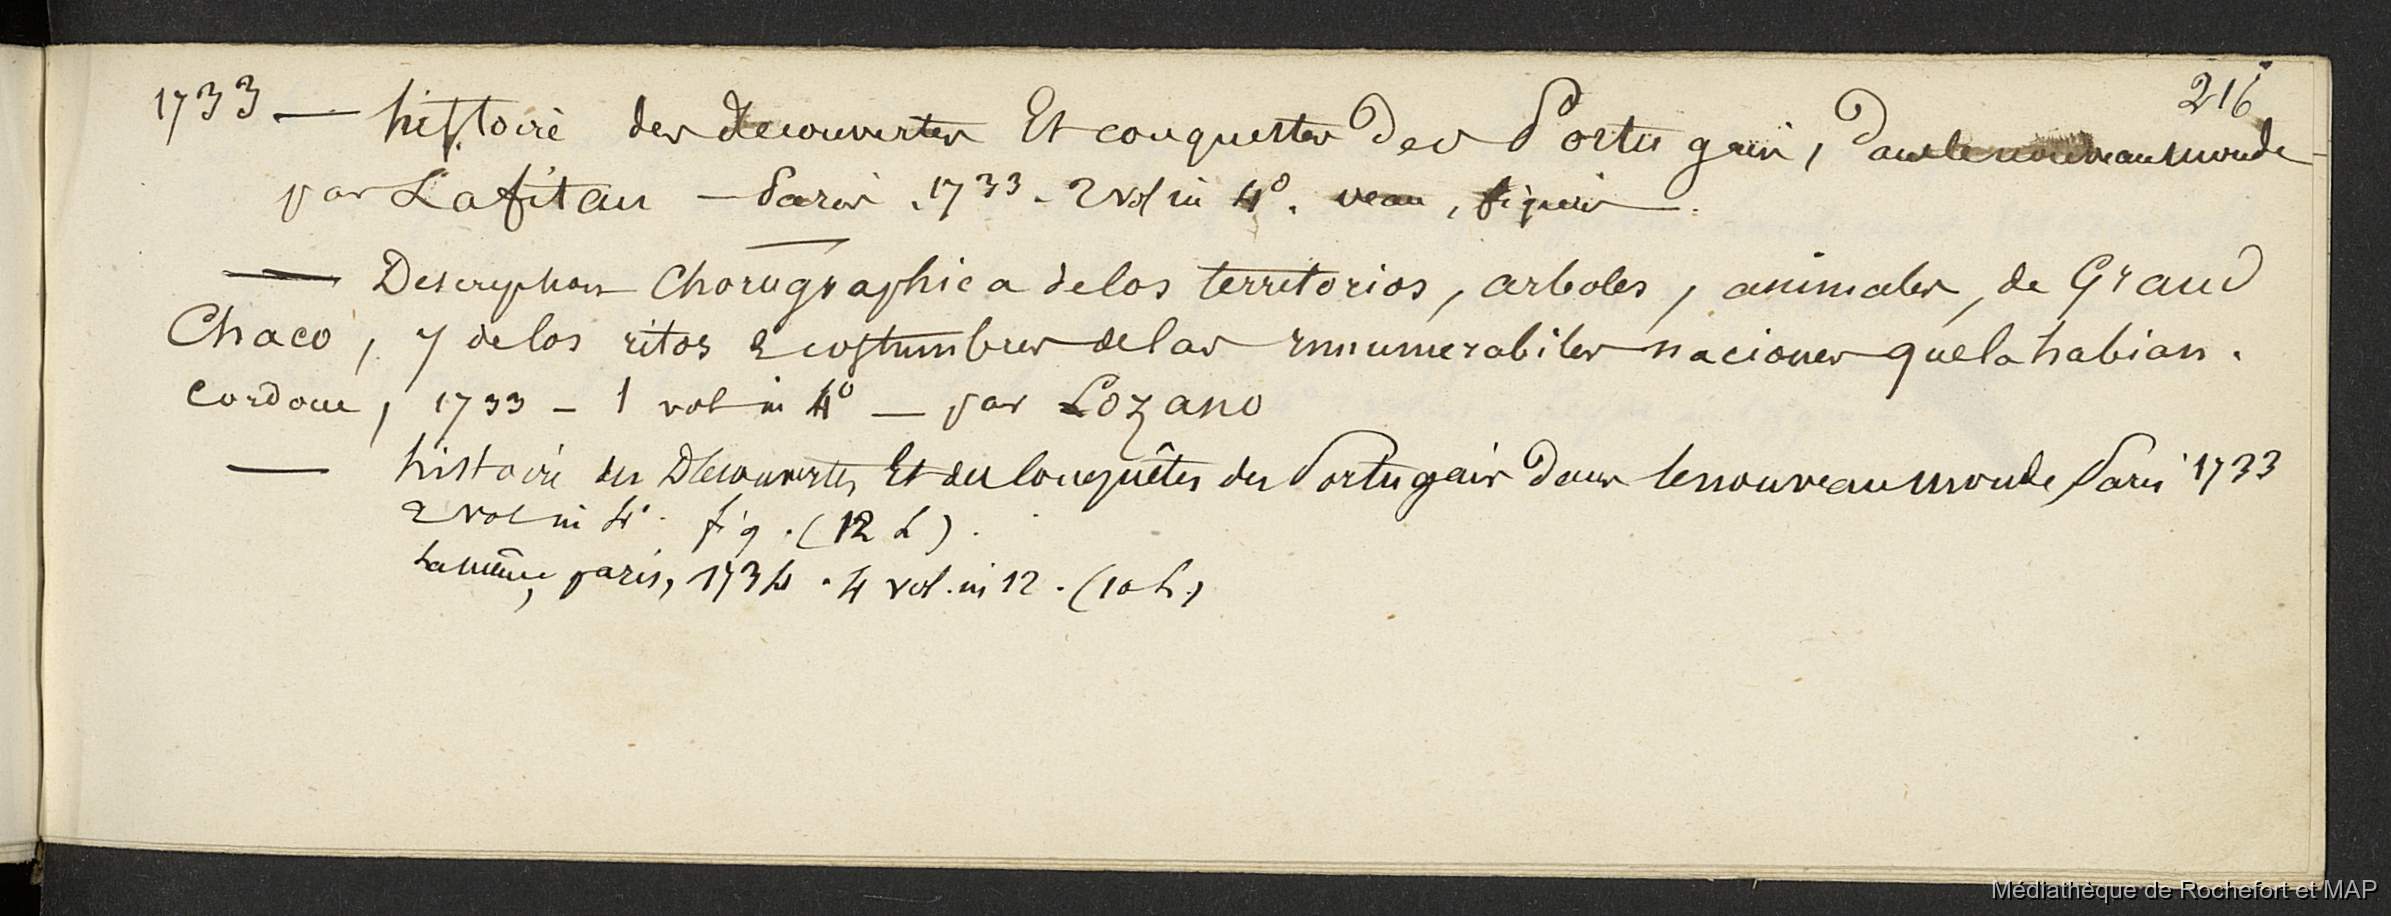 216
1733 — histoire des decouvertes Et conquestes Des Portugais, Dans le nouveau monde
par Lafitau — Paris . 1733 . 2 vol in 4º . veau , figures .
— Descripcion Chorographica de los territorios, arboles, animales, de Grand
Chaco, y de los ritos e costumbres de las innumerabiles naciones que la habian .
Cordoue, 1733 — 1 vol in 4º — par Lozano
— histoire des Découvertes, Et des Conquêtes des Portugais Dans le nouveau monde Paris 1733
2 vol in 4º . fig . (12 L) .
La même, paris, 1734 . 4 vol . in 12 . (10 L.)
Médiathèque de Rochefort et MAP